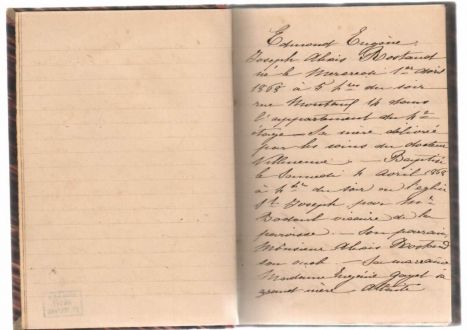 Edmond Eugène
Joseph Alexis Rostand
né le Mercredi 1er Avril
1868 à 5 hres du soir
rue Montaux 14 dans
l'appartement du 2e
étage — Sa mère délivrée
par les soins du docteur
Villeneuve — Baptisé
le Samedi 4 Avril 1868
à 4 h du soir en l'église
St Joseph par Mr
vicaire de la
paroisse — Son parrain
Monsieur Alexis Rostand
son oncle — Sa marraine
Madame Eugénie Gayet sa
grand mère